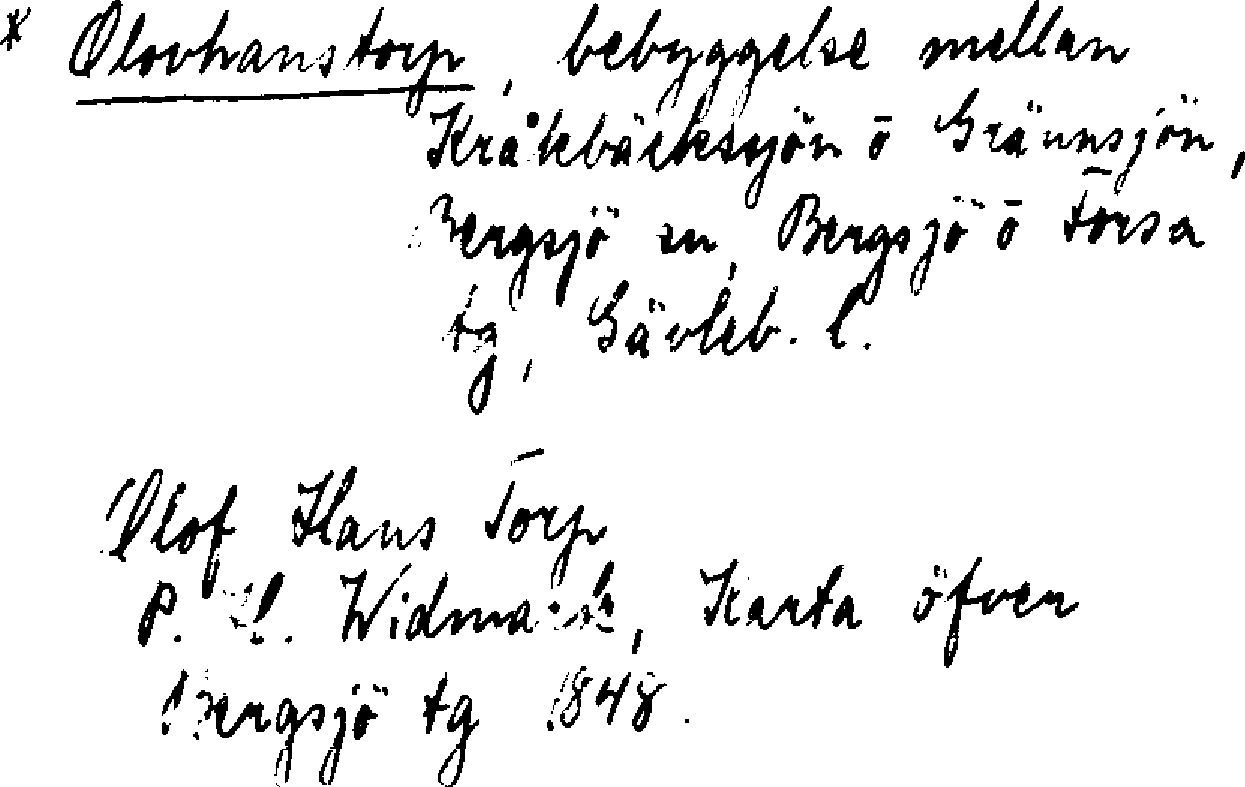 * Olovhanstorp, bebyggelse mellan
Kråkbäcksjön ō Grännsjön,
Bergsjö sn, Bergsjö ō Forsa
tg, Gävleb. l.
Olof Hans Torp
P. H. Widmark, Karta öfver
Bergsjö tg 1848.